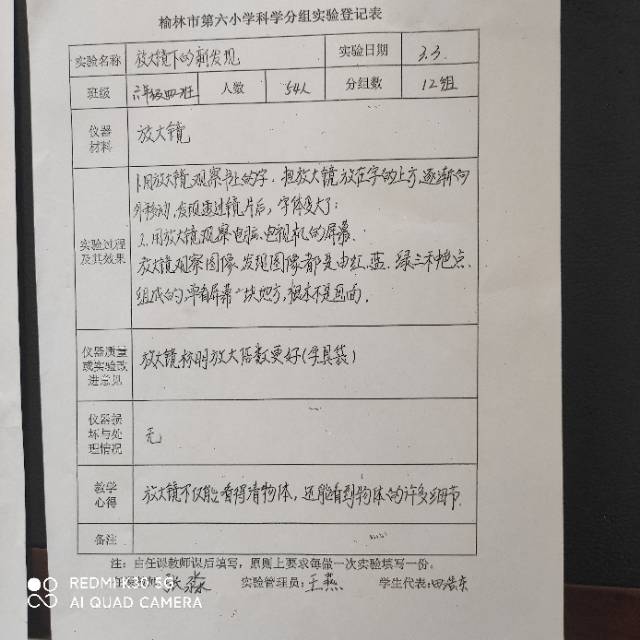 榆林市第六小学科学分组实验登记表
实验名称 放大镜下的新发现 实验日期 3.3.
班级 六年级四班 人数 54人 分组数 12组
仪器材料 放大镜
实验过程及其效果
1.用放大镜观察书上的字.把放大镜放在字的上方,逐渐向
外移动,发现透过镜片后,字体变大了;
2.用放大镜观察电脑、电视机的屏幕.
放大镜观察图像,发现图像都是由红、蓝、绿三种色点
组成的,单看屏幕一块地方,根本不是画面.
仪器质量或实验改进意见 放大镜标明放大倍数更好(学具袋)
仪器损坏与处理情况 无
教学心得 放大镜不仅能看得清物体,还能看到物体的许多细节.
备注
注:由任课教师课后填写,原则上要求每做一次实验填写一份。
张淼 实验管理员:王燕 学生代表:田浩东
REDMI K30 5G
AI QUAD CAMERA